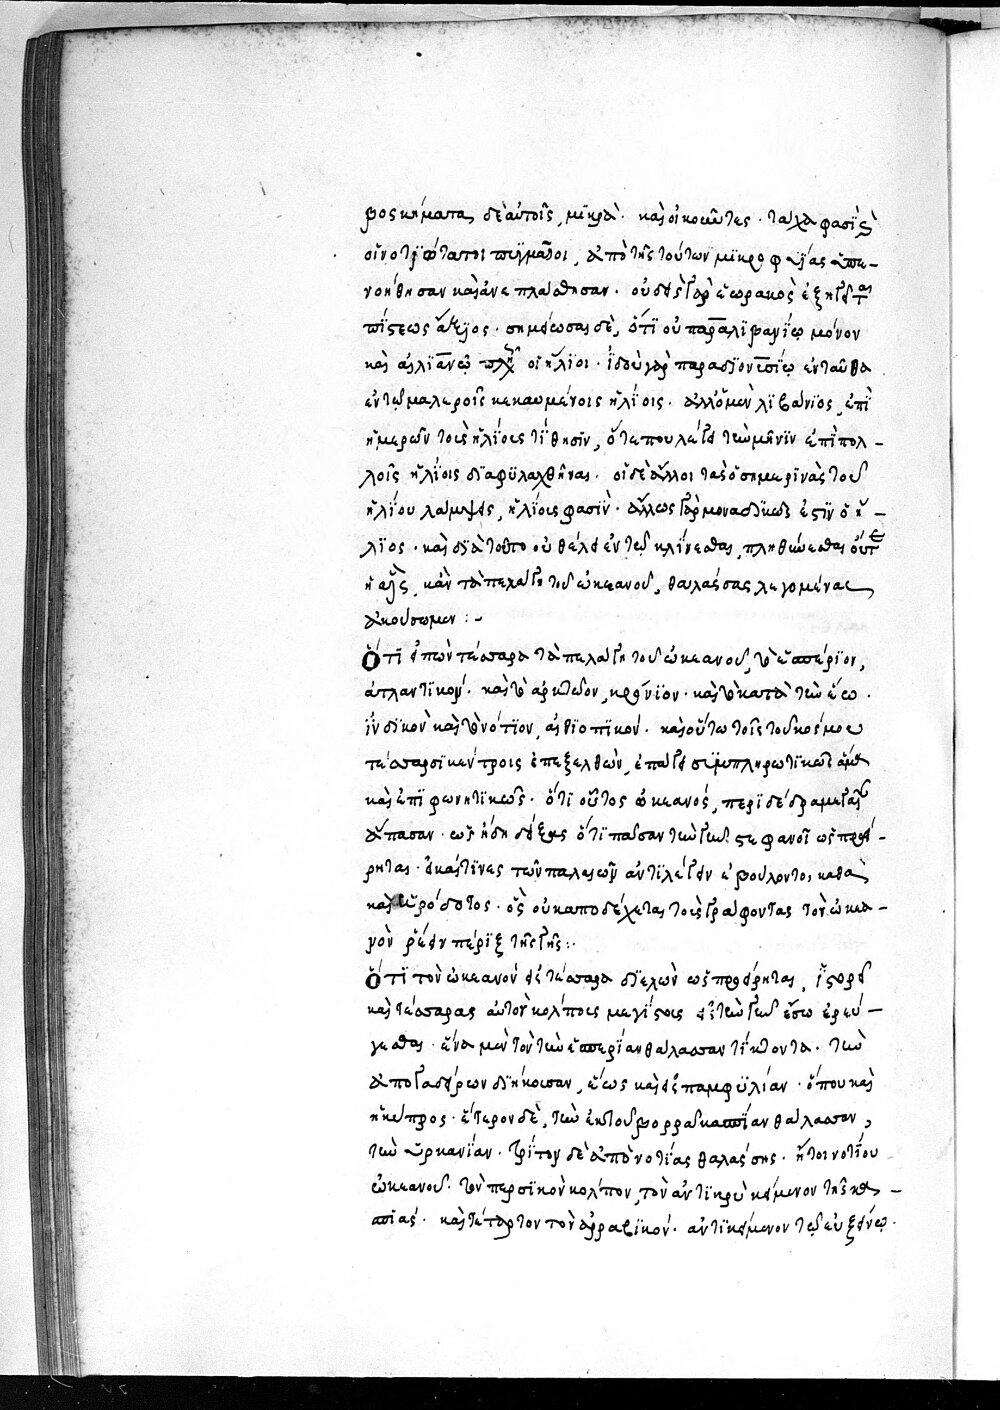 βοσκήματα δὲ αὐτοῖς, μικρά· καὶ οἰκοῦντες· τάχα φασὶ
οἱ νοτιώτατοι πυγμαῖοι, ἀπὸ τῆς τούτων μικροφυΐας ἐπε-
νοήθησαν καὶ ἀνεπλάσθησαν· οὐδεὶς γὰρ ἑωρακὼς ἐξηγεῖται
πίστεως ἄξιος· σημείωσαι δὲ, ὅτι οὐ παρὰ λιβανίῳ μόνον
καὶ αἰλιανῷ οἱ ἥλιοι· ἰδοὺ γὰρ παρὰ διονυσίῳ ἐνταῦθα
ἐν τῷ μαλεροῖς κεκαυμένοις ἡλίοις· ἀλλ' ὁ μὲν λιβάνιος, ἐπὶ
ἡμερῶν τοὺς ἡλίους τίθησιν, ὅτε που λέγει τὴν μῆνιν ἐπὶ πολ-
λοῖς ἡλίοις διαφυλαχθῆναι· οἱ δὲ ἄλλοι τὰς ὁσημερινὰς τοῦ
ἡλίου λάμψεις, ἡλίους φασίν· ἄλλως γὰρ μοναδικῶς ἐστὶν ὁ ἥ-
λιος· καὶ διὰ τοῦτο οὐ θέλει ἐν τῷ κλίνεσθαι, πληθύνεσθαι οὔτε
ἡ γῆ, κἂν τὰ πελάγη τοῦ ὠκεανοῦ, θαλάσσας λεγομένας
ἀκούσωμεν :-
Ὅτι εἰπὼν τέσσαρα τὰ πελάγη τοῦ ὠκεανοῦ, τὸ ἑσπέριον,
ἀτλαντικόν· καὶ τὸ ἀρκτῷον, κρόνιον· καὶ τὸ κατὰ τὴν ἕω·
ἰνδικὸν καὶ τὸ νότιον, αἰθιοπικόν· καὶ οὕτω τοῖς τοῦ κόσμου
τέσσαρσι κέντροις ἐπεξελθὼν, ἐπάγει συμπληρωτικῶς ἅμα
καὶ ἐπιφωνητικῶς· ὅτι οὗτος ὠκεανὸς, περιδέδραμε γαῖαν
ἅπασαν· ὡς ἤδη δείξας ὅτι πᾶσαν τὴν γῆν στεφανοῖ ὡς προεί-
ρηται· εἰ καί τινες τῶν παλαιῶν ἀντιλέγειν ἐβούλοντο, καθὰ
καὶ ἡρόδοτος· ὃς οὐκ ἀποδέχεται τοὺς γράφοντας τὸν ὠκεα-
νὸν ῥέειν πέριξ τῆς γῆς :·
Ὅτι τὸν ὠκεανὸν εἰς τέσσαρα διελὼν ὡς προείρηται, ἱστορεῖ
καὶ τέσσαρας αὐτοῦ κόλπους μεγίστους εἰς τὴν γῆν ἔσω ἐρεύ-
γεσθαι· ἕνα μὲν τὸν τὴν ἑσπερίαν θάλασσαν τίκτοντα· τὴν
ἀπὸ γαδείρων διήκουσαν, ἕως καὶ εἰς παμφυλίαν· ὅπου καὶ
ἡ κύπρος· ἕτερον δὲ, τὴν ἐκ τοῦ βορρᾶ κασπίαν θάλασσαν,
τὴν ὑρκανίαν· τρίτον δὲ ἀπὸ νοτίας θαλάσσης· ἤτοι νοτίου
ὠκεανοῦ· τὸν περσικὸν κόλπον, τὸν ἀντικρὺ κείμενον τῆς κα-
σπίας· καὶ τέταρτον τὸν ἀρραβικόν· ἀντικείμενον τῷ εὐξείνῳ·